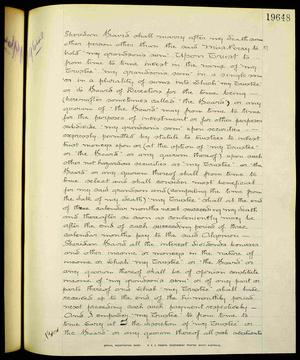 19648
Sheridan Beard shall marry after my death some
other person other than the said Miss Perry to
hold "my grandson's sum" Upon Trust
from time to time invest in the name of my
Trustee "my grandson's sum" in a single sum
or in a plurality of sums into which my Trustee
or its Board of Directors for the time being
(hereinafter sometimes called "the Board") or any
quorum of "the Board" may from time to time
for the purposes of investment or for other purposes
subdivide "my grandson's sum" upon securities
expressly permitted by statute to trustees to invest
trust moneys upon or (at the option of "my Trustee"
or "the Board" or any quorum thereof) upon such
other not hazardous securities as "my Trustee" or the
Board or any quorum thereof shall from time to
time select and shall consider most beneficial
for my said grandson and (computing the time from
the date of my death) "my Trustee" shall at the end
of three calendar months next succeeding my death
and thereafter as soon as conveniently may be
after the end of each succeeding period of three
calendar months pay to the said
Sheridan Beard all the interest dividends bonuses
and other income or moneys in the nature of
income or which "my Trustee" or "the Board" or any
quorum thereof shall be of opinion constitute
income of "my grandson's sum" or of any part or
parts thereof or which "my Trustee" shall have
received up to the end of the tri-monthly period
next preceding each said payment respectively
And I empower "my Trustee" to from time to
time carry at the discretion of "my Trustee" or
the Board or any quorum thereof all such